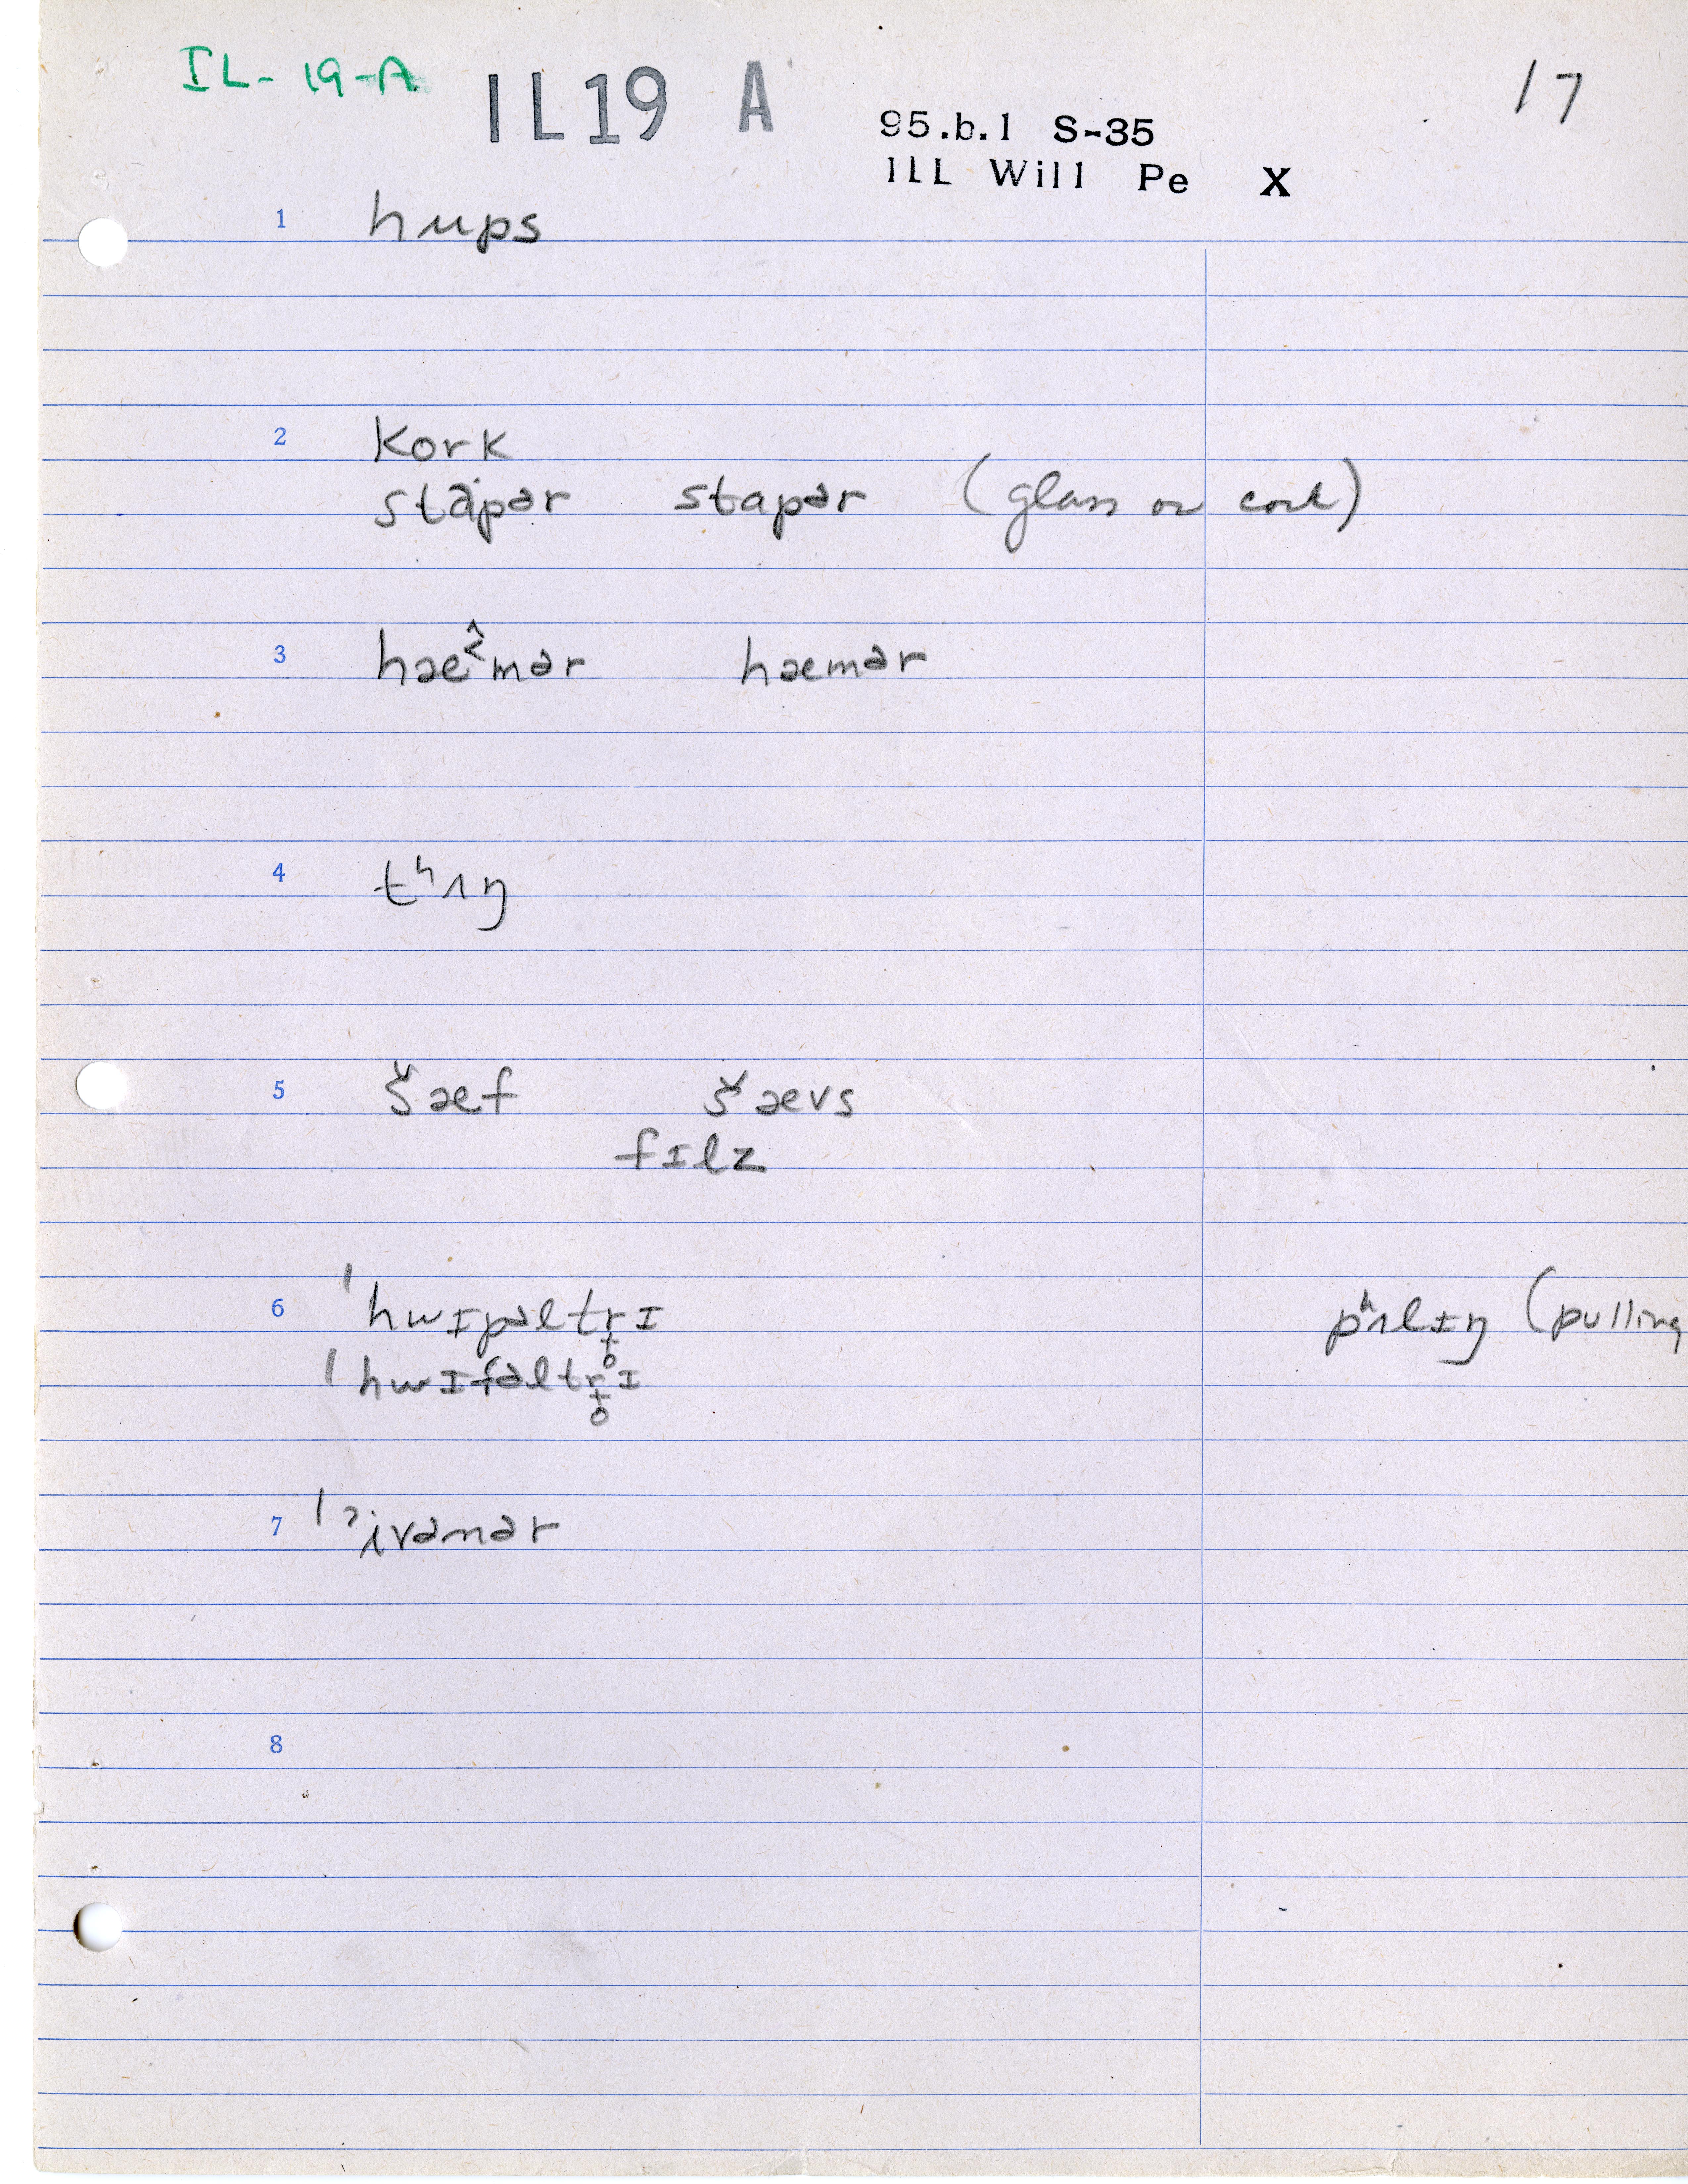 IL-19-A IL19 A 17
95.b.1 S-35
ILL Will Pe X
1 hups
2 kork
stapər stapər (glass or cork)
3 hæ^<mər hæmər
4 tʰʌŋ
5 šæf šævs
fɪlz
6 ˈhwɪpəltrɪ pʰʌlɪŋ (pulling
ˈhwɪfəltrɪ
7 ˈʔivənər
8